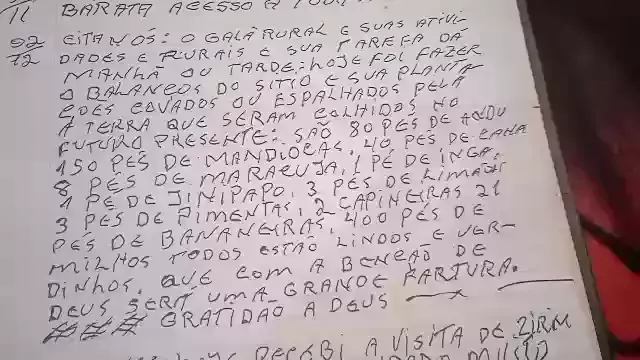 11 BARATA ACESSO A
92/72 CITAMOS: O GALÃ RURAL E SUAS ATIVI-
DADES E RURAIS E SUA TAREFA DA
MANHÃ OU TARDE: HOJE FOI FAZER
O BALANCOS DO SITIO E SUA PLANTA
COES COVADOS OU ESPALHADOS PELA
A TERRA QUE SERAM COLHIDOS NO
FUTURO PRESENTE: SÃO 80 PES DE ANDU
150 PÉS DE MANDIOCAS, 40 PES DE CANA
8 PÉS DE MARACUJA, 1 PÉ DE INGA,
1 PE DE JINIPAPO, 3 PÉS DE LIMAOS
3 PES DE PIMENTAS, 2 CAPINEIRAS 21
PÉS DE BANANEIRAS, 400 PÉS DE
MILHOS TODOS ESTÃO LINDOS E VER-
DINHOS. QUE COM A BENCÃO DE
DEUS SERÁ UMA GRANDE FARTURA.
### GRATIDÃO A DEUS
RECEBI A VISITA DE